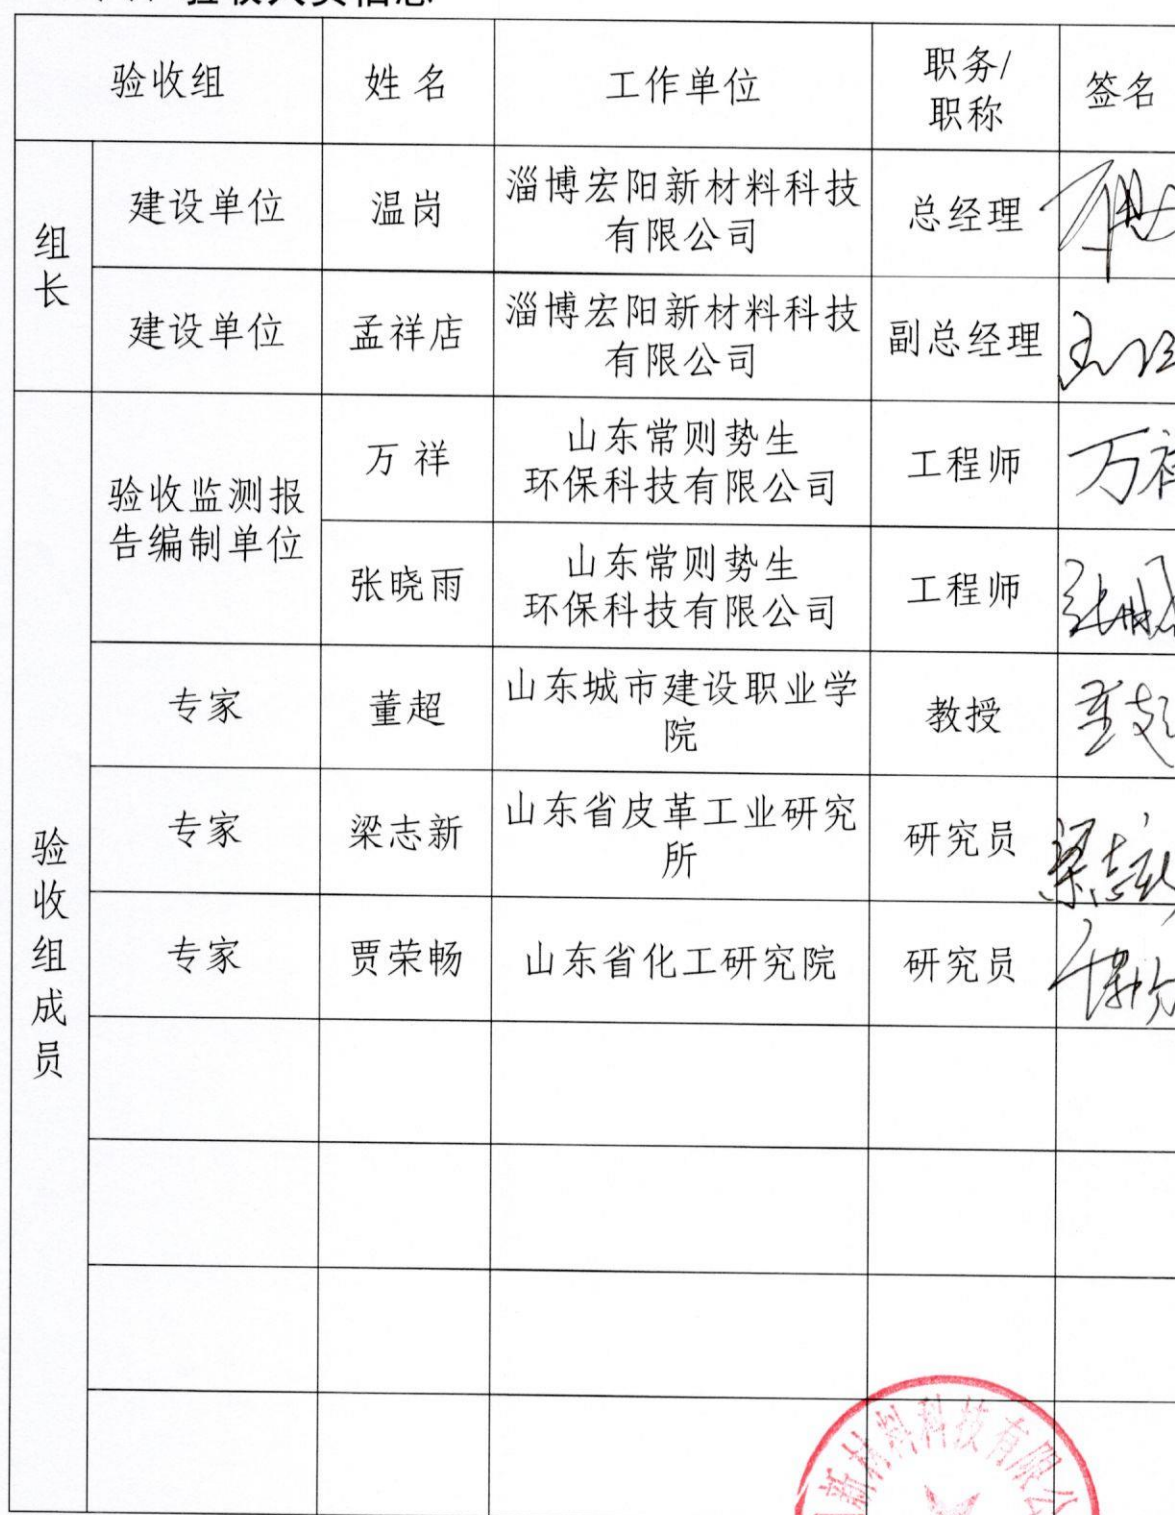 验收人员信息
验收组 姓名 工作单位 职务/
职称 签名
组长 建设单位 温岗 淄博宏阳新材料科技
有限公司 总经理
建设单位 孟祥店 淄博宏阳新材料科技
有限公司 副总经理
验收组成员 验收监测报
告编制单位 万祥 山东常则势生
环保科技有限公司 工程师 万祥
张晓雨 山东常则势生
环保科技有限公司 工程师
专家 董超 山东城市建设职业学
院 教授 董超
专家 梁志新 山东省皮革工业研究
所 研究员 梁志新
专家 贾荣畅 山东省化工研究院 研究员
新材料科技有限公